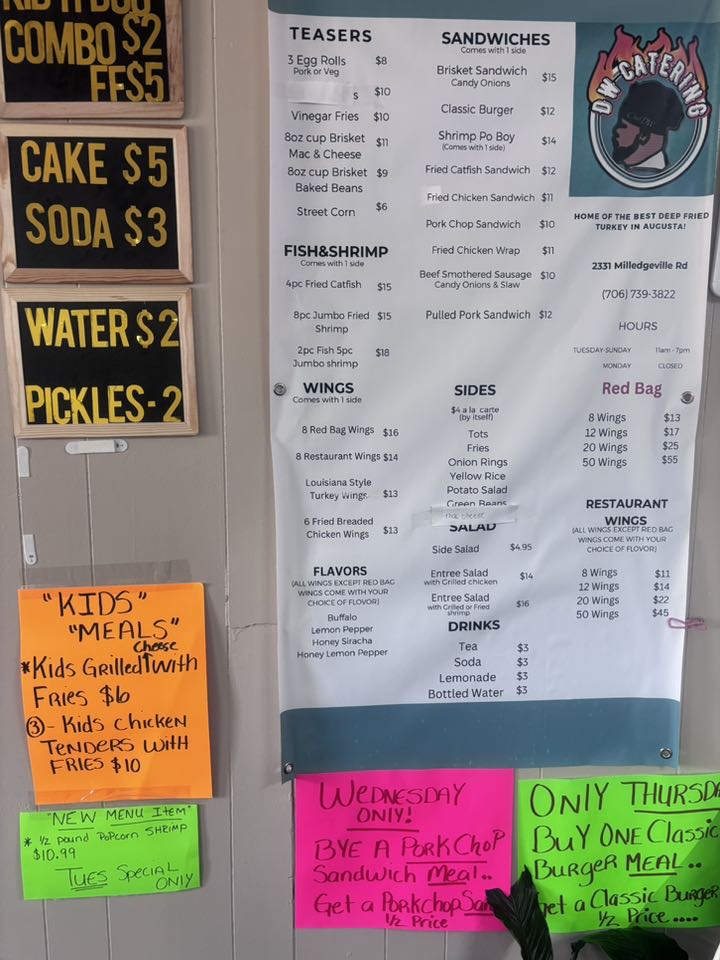 COMBO $2
FF $5
CAKE $5
SODA $3
WATER $2
PICKLES - 2
"KIDS"
"MEALS"
Cheese
*Kids Grilled with
Fries $6
③ - Kids chicken
TENDERS WITH
FRIES $10
"NEW MENU ITEM"
* 1/2 pound Popcorn SHRIMP
$10.99
TUES Special
ONLY
TEASERS
3 Egg Rolls $8
Pork or Veg
s $10
Vinegar Fries $10
8oz cup Brisket $11
Mac & Cheese
8oz cup Brisket $9
Baked Beans
Street Corn $6
FISH&SHRIMP
Comes with 1 side
4pc Fried Catfish $15
8pc Jumbo Fried $15
Shrimp
2pc Fish 5pc $18
Jumbo shrimp
WINGS
Comes with 1 side
8 Red Bag Wings $16
8 Restaurant Wings $14
Louisiana Style
Turkey Wings $13
6 Fried Breaded
Chicken Wings $13
FLAVORS
(ALL WINGS EXCEPT RED BAG
WINGS COME WITH YOUR
CHOICE OF FLOVOR)
Buffalo
Lemon Pepper
Honey Siracha
Honey Lemon Pepper
SANDWICHES
Comes with 1 side
Brisket Sandwich $15
Candy Onions
Classic Burger $12
Shrimp Po Boy $14
(Comes with 1 side)
Fried Catfish Sandwich $12
Fried Chicken Sandwich $11
Pork Chop Sandwich $10
Fried Chicken Wrap $11
Beef Smothered Sausage $10
Candy Onions & Slaw
Pulled Pork Sandwich $12
SIDES
$4 a la carte
(by itself)
Tots
Fries
Onion Rings
Yellow Rice
Potato Salad
Green Beans
mac cheese
SALAD
Side Salad $4.95
Entree Salad $14
with Grilled chicken
Entree Salad $16
with Grilled or Fried
shrimp
DRINKS
Tea $3
Soda $3
Lemonade $3
Bottled Water $3
DW-CATERING
HOME OF THE BEST DEEP FRIED
TURKEY IN AUGUSTA!
2331 Milledgeville Rd
(706) 739-3822
HOURS
TUESDAY-SUNDAY 11am - 7pm
MONDAY CLOSED
Red Bag
8 Wings $13
12 Wings $17
20 Wings $25
50 Wings $55
RESTAURANT
WINGS
(ALL WINGS EXCEPT RED BAG
WINGS COME WITH YOUR
CHOICE OF FLOVOR)
8 Wings $11
12 Wings $14
20 Wings $22
50 Wings $45
WEDNESDAY
ONLY!
BYE A PORK CHOP
Sandwich Meal..
Get a Porkchop San
1/2 Price
ONLY THURSDA
BUY ONE Classic
Burger MEAL..
Get a Classic Burger
1/2 Price....